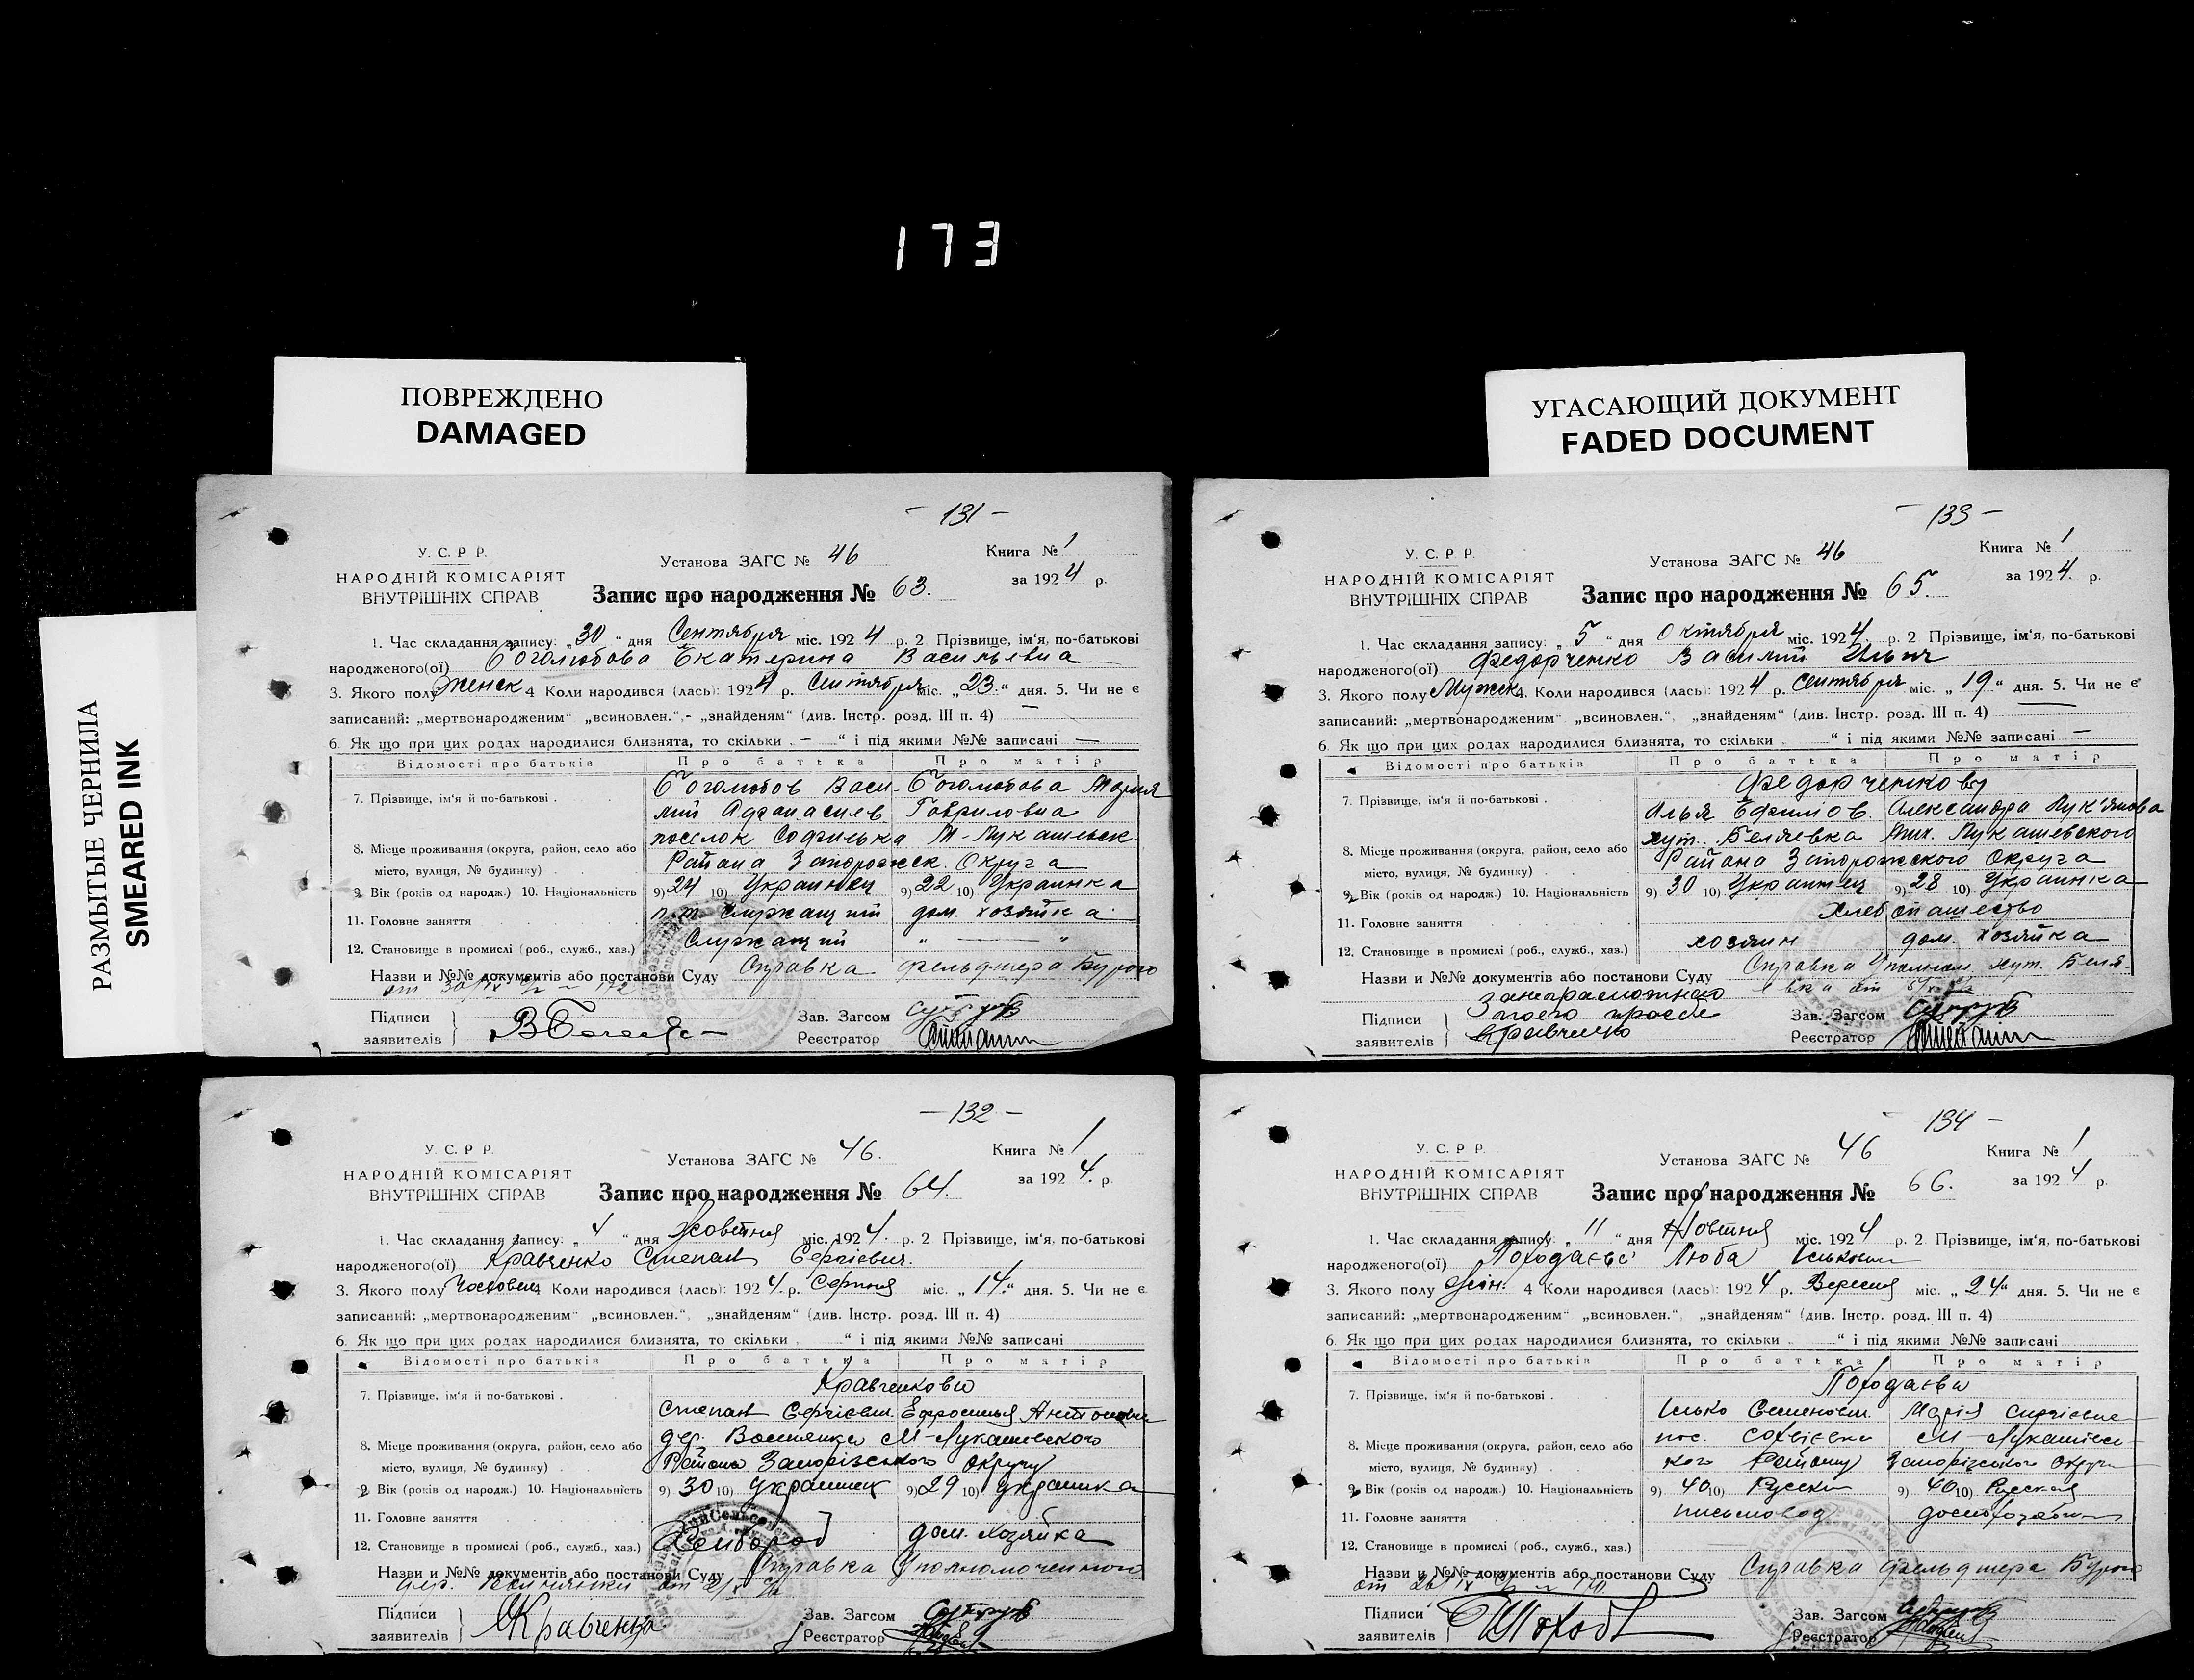 173
ПОВРЕЖДЕНО
DAMAGED
УГАСАЮЩИЙ ДОКУМЕНТ
FADED DOCUMENT
РАЗМЫТЫЕ ЧЕРНИЛА
SMEARED INK
- 131 -
У. С. Р Р.
НАРОДНІЙ КОМІСАРІЯТ
ВНУТРІШНІХ СПРАВ
Установа ЗАГС № 46
Книга № 1
Запис про народження № 63.
за 1924 р.
1. Час складання запису: „30“ дня Сентября міс. 1924 р. 2 Прізвище, ім‘я, по-батькові
народженого(ої) Боголюбова Екатерина Васильевна
3. Якого полу Женск 4 Коли народився (лась): 1924 р. Сентября міс. „23.“ дня. 5. Чи не є
записаний: „мертвонародженим“ „всиновлен.“,- „знайденям“ (див. Інстр. розд. III п. 4) —
6 Як що при цих родах народилися близнята, то скільки „ – “ і під якими №№ записані —
Відомості про батьків Про батька Про матір
7. Прізвище, ім‘я й по-батькові . Боголюбов Васи- Боголюбова Мария
лий Афанасиев Гавриловна
8. Місце проживання (округа, район, село або поселок Софиевка М-Лукашевск.
місто, вулиця, № будинку) . Района Запорожск. Округа
9. Вік (років од народж.) 10. Національність 9) 24 10) Украинец 9) 22 10) Украинка
11. Головне заняття служащий дом. хозяйка
12. Становище в промислі (роб., служб., хаз.) Служащий „ — “
Назви и №№ документів або постанови Суду Справка фельдшера Бурого
от 30/IX
Підписи
заявителів
Зав. Загсом
Реєстратор
- 132 -
У. С. Р Р.
НАРОДНІЙ КОМІСАРІЯТ
ВНУТРІШНІХ СПРАВ
Установа ЗАГС № 46.
Книга № 1
Запис про народження № 64.
за 1924. р.
1. Час складання запису: „ 4 “ дня Жовтня міс. 1924. р. 2 Прізвище, ім‘я, по-батькові
народженого(ої) Кравченко Степан Сергієвич.
3. Якого полу Чоловіч. 4 Коли народився (лась): 1924. р. Серпня міс. „14.“ дня. 5. Чи не є
записаний: „мертвонародженим“ „всиновлен.“, „знайденям“ (див. Інстр. розд. III п. 4)
6 Як що при цих родах народилися близнята, то скільки „ “ і під якими №№ записані
Відомості про батьків Про батька Про матір
7. Прізвище, ім‘я й по-батькові . Кравченкови
Степан Сергієвич. Ефросинья Антоновна
8. Місце проживання (округа, район, село або дер. М-Лукашевского
місто, вулиця, № будинку) . Району Запорізського округу
9. Вік (років од народж.) 10. Національність 9) 30 10) украинец 9) 29 10) украинка
11. Головне заняття
12. Становище в промислі (роб., служб., хаз.) Хлібороб дом. хозяйка
Назви и №№ документів або постанови Суду Справка Уполномоченного
Підписи
заявителів Кравченко
Зав. Загсом
Реєстратор
- 133 -
У. С. Р Р.
НАРОДНІЙ КОМІСАРІЯТ
ВНУТРІШНІХ СПРАВ
Установа ЗАГС № 46
Книга № 1
Запис про народження № 65.
за 1924. р.
1. Час складання запису: „ 5 “ дня Октября міс. 1924. р. 2 Прізвище, ім‘я, по-батькові
народженого(ої) Федорченко Василий Ильич
3. Якого полу Мужск. 4. Коли народився (лась): 1924 р. Сентября міс. „ 19 “ дня. 5. Чи не є
записаний: „мертвонародженим“ „всиновлен.“, „знайденям“ (див. Інстр. розд. III п. 4) —
6 Як що при цих родах народилися близнята, то скільки „ “ і під якими №№ записані —
Відомості про батьків Про батька Про матір
7. Прізвище, ім‘я й по-батькові . Федорченковы
Илья Ефимов. Александра Лук‘янова
8. Місце проживання (округа, район, село або хут. Беляевка Мих. Лукашевского
місто, вулиця, № будинку) . Района Запорожского Округа
9. Вік (років од народж.) 10. Національність 9) 30 10) Украинец 9) 28 10) Украинка
11. Головне заняття Хлебопашество
12. Становище в промислі (роб., служб., хаз.) хозяин дом. хозяйка
Назви и №№ документів або постанови Суду Справка Уполном. хут. Беля-
евка от
Підписи
заявителів Кравченко
Зав. Загсом
Реєстратор
- 134 -
У. С. Р Р.
НАРОДНІЙ КОМІСАРІЯТ
ВНУТРІШНІХ СПРАВ
Установа ЗАГС № 46
Книга № 1
Запис про народження № 66.
за 1924 р.
1. Час складання запису: „ 11 “ дня Жовтня міс. 1924 р. 2 Прізвище, ім‘я, по-батькові
народженого(ої) Люба
3. Якого полу жін. 4 Коли народився (лась): 1924 р. Вересня міс. „ 24“ дня. 5. Чи не є
записаний: „мертвонародженим“ „всиновлен.“, „знайденям“ (див. Інстр. розд. III п. 4)
6 Як що при цих родах народилися близнята, то скільки „ “ і під якими №№ записані
Відомості про батьків Про батька Про матір
7. Прізвище, ім‘я й по-батькові .
Ілько Семенович. Марія Сиргієвна
8. Місце проживання (округа, район, село або пос. Софієвки М-Лукашівсь
місто, вулиця, № будинку) . кого Району Запорізського округи
9. Вік (років од народж.) 10. Національність 9) 40 10) Русский 9) 40 10) Русская
11. Головне заняття письмовод
12. Становище в промислі (роб., служб., хаз.)
Назви и №№ документів або постанови Суду Справка фельдшера Бурого
Підписи
заявителів
Зав. Загсом
Реєстратор